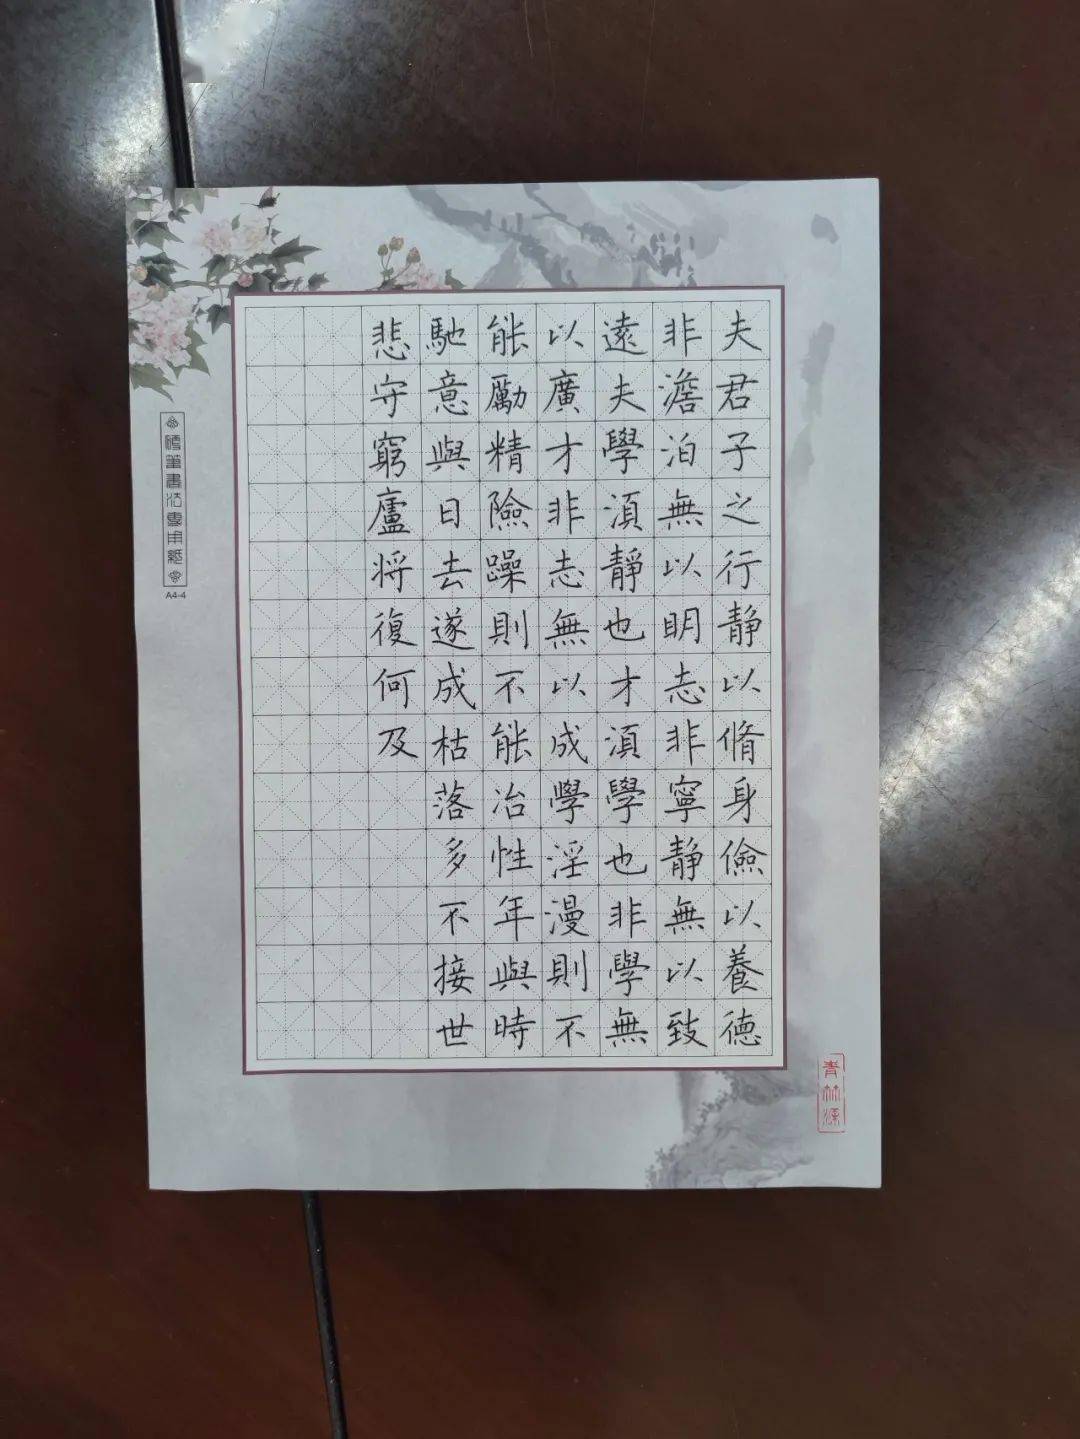 夫君子之行静以脩身儉以養德
非澹泊無以明志非寧静無以致
遠夫學須靜也才須學也非學無
以廣才非志無以成學淫漫則不
能勵精險躁則不能冶性年與時
馳意與日去遂成枯落多不接世
悲守窮廬将復何及
硬筆書法專用紙
A4-4
青林源